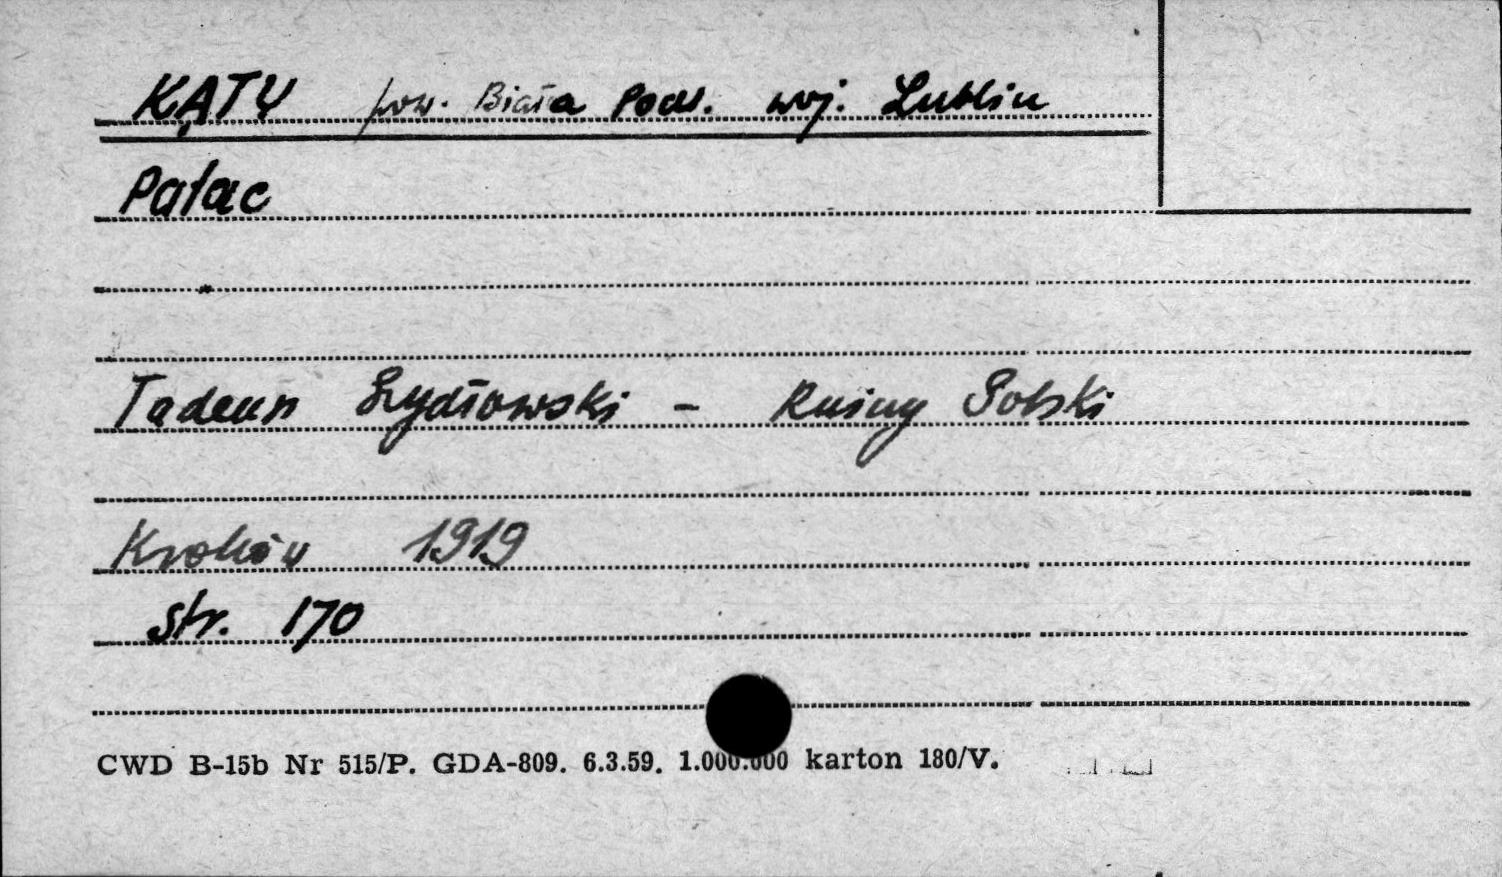 KĄTY pow. Biała Podl. woj. Lublin
Pałac
Tadeusz Szydłowski - Ruiny Polski
Kraków 1919
str. 170
CWD B-15b Nr 515/P. GDA-809. 6.3.59. 1.000.000 karton 180/V.